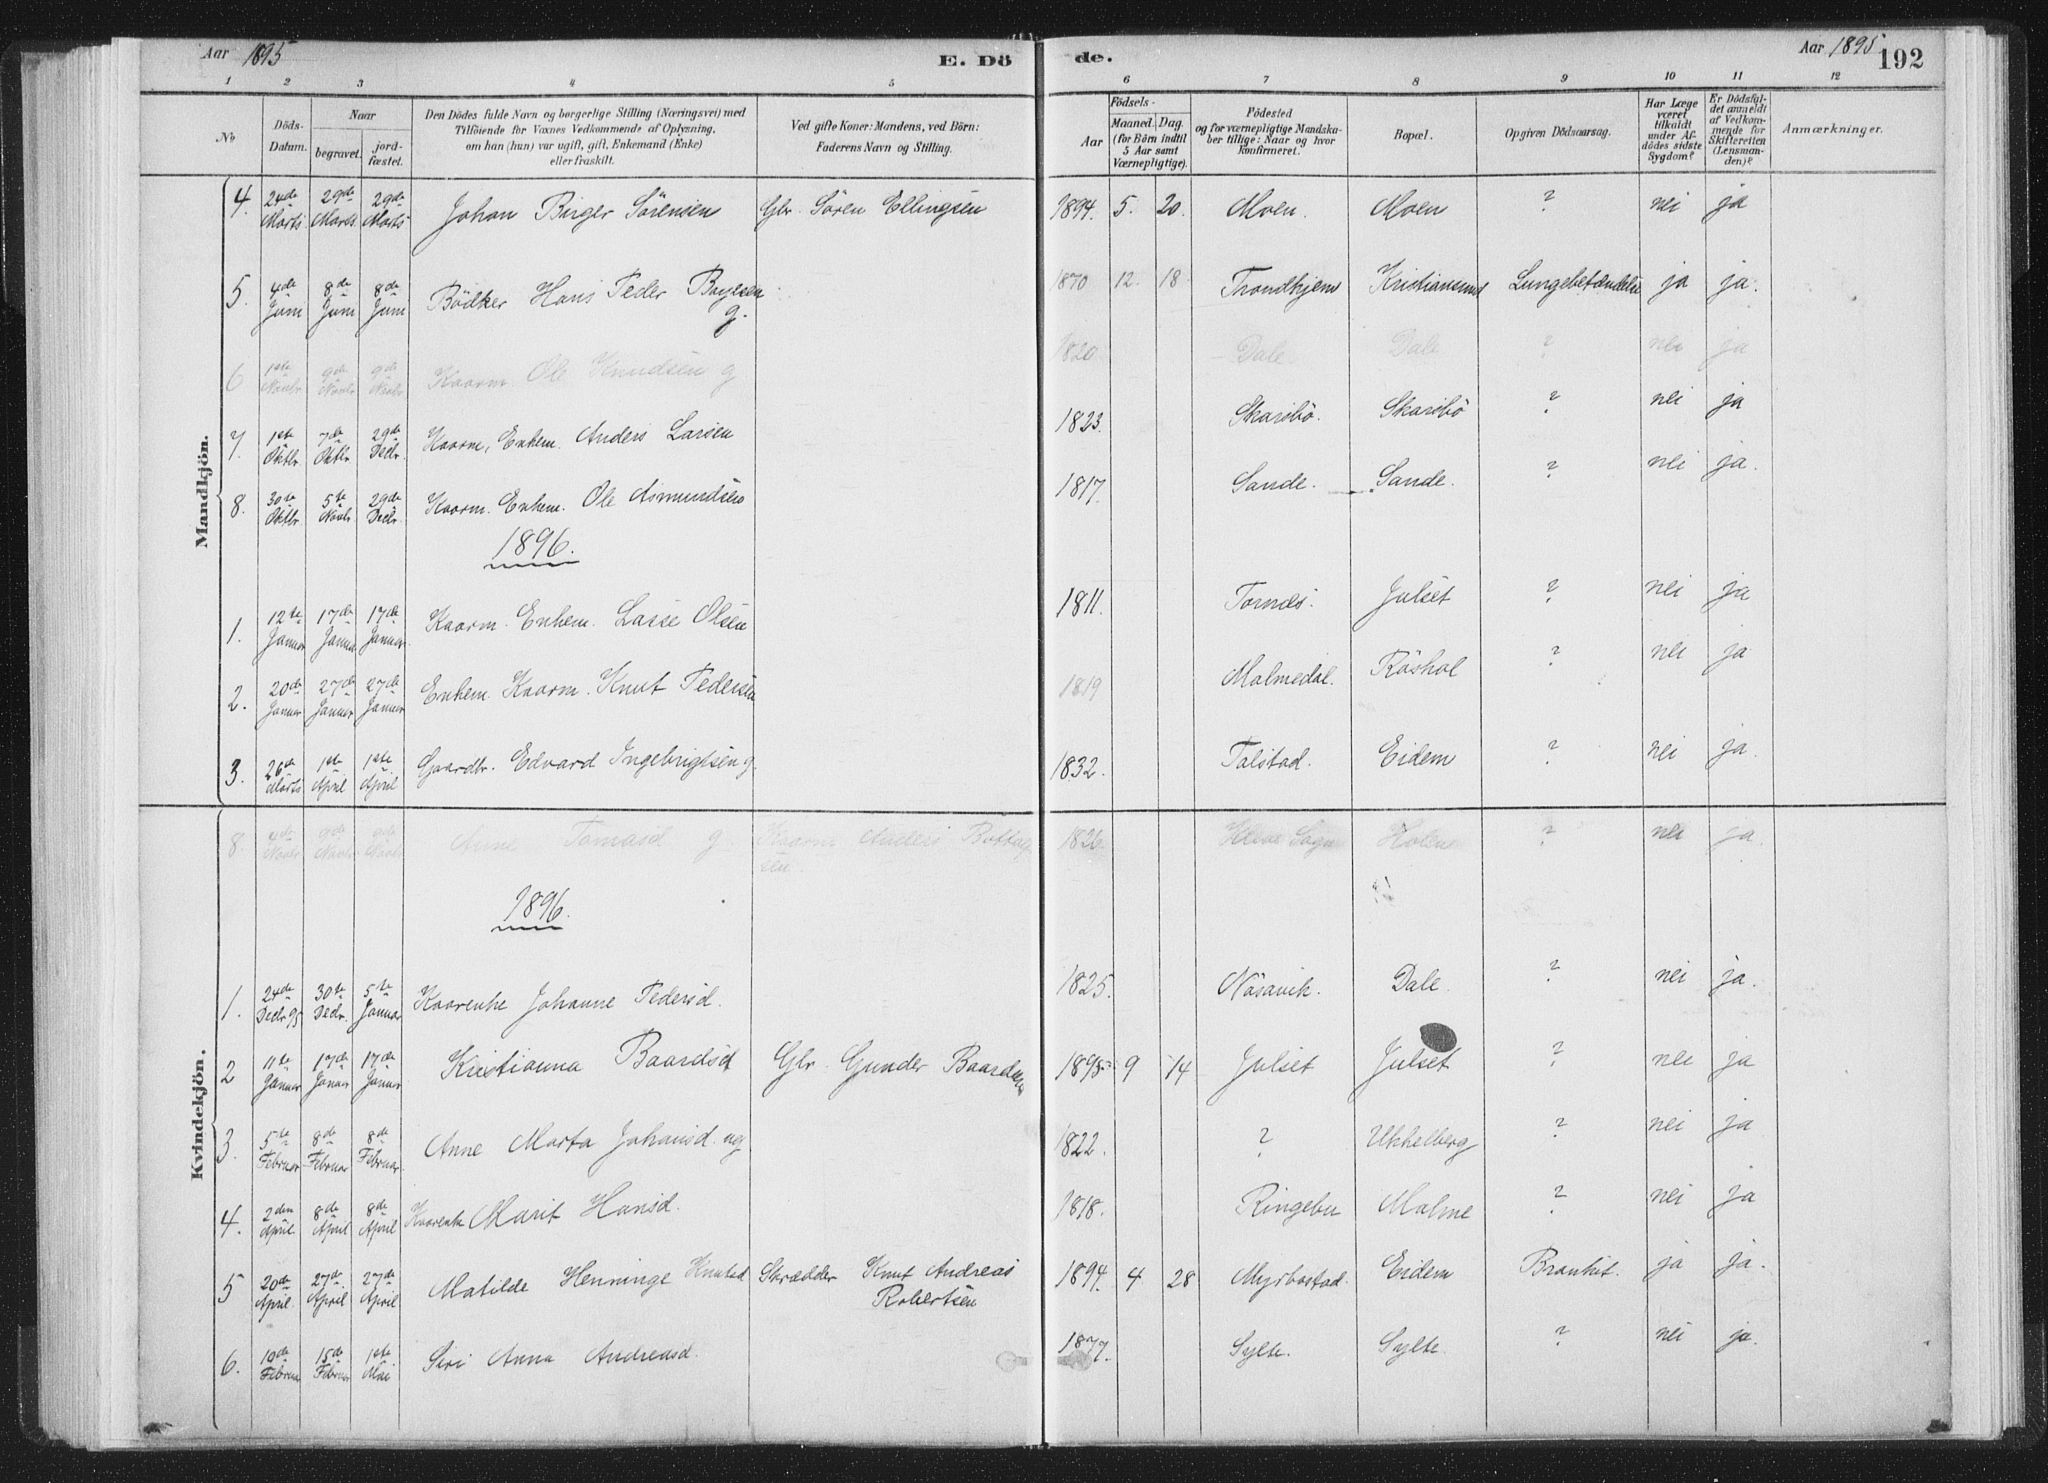 Aar 1895 E. Dö de. Aar 1895 192
1 2 3 4 5 6 7 8 9 10 11 12
No Döds-Datum. Naar begravet. jordfæstet. Den Dödes fulde Navn og borgerlige Stilling (Næringsvei) med Tilföiende for Voxnes Vedkommende af Oplysning, om han (hun) var ugift, gift, Enkemand (Enke) eller fraskilt. Ved gifte Koner: Mandens, ved Börn: Faderens Navn og Stilling. Födsels- Aar Maaned. Dag. (for Börn indtil 5 Aar samt Værnepligtige). Födested og for værnepligtige Mandskaber tillige: Naar og hvor konfirmeret. Bopæl. Opgiven Dödsaarsag. Har Læge været tilkaldt under Afdödes sidste Sygdom? Er Dödsfaldet anmeldt af Vedkommende for Skifteretten (Lensmanden)? Anmærkninger.
Mandkjön.
4. 24de Marts 29de Marts 29de Marts Johan Birger Sörensen Gbr. Sören Ellingsen 1894. 5. 20. Moen. Moen ? nei ja
5. 4de Juni 8de Juni 8de Juni Bödker Hans Peder Boyesen g. 1870 12. 18. Trondhjem Kristiansund Lungebetændelse ja ja.
6 1ste Novbr 9de Novbr 9de Novbr Kaarm Ole Knudsen g 1820 Dale Dale ? nei ja
7. 1ste Oktbr 7de Oktbr 29de Decbr. Kaarm, Enkem. Anders Larsen 1823. Skarsbö. Skarsbö ? nei ja
8. 30te Oktbr 5te Novbr 29de Decbr Kaarm. Enkem. Ole Asmundsen 1817. Sande. Sande. ? nei ja.
1896.
1. 12te Januar 17de Januar 17de Januar. Kaarm. Enkem. Lasse Olsen 1811. Tornes. Julset ? nei ja
2. 20de Januar 27de Januar 27de Januar Enkem. Kaarm. Knut Pedersen 1819 Malmedal. Röshol ? nei ja
3. 26de Marts 1ste April 1ste April Gaardbr. Edvard Ingebrigtsen g. 1832. Talstad. Eidem ? nei ja.
Kvindekjön.
8. Novbr Novbr Novbr Anne Tomasd g Kaarm Anders Bottolfsen 1826 Sogn Holen ? nei ja.
1896.
1. 24de Decbr 95 30te Decbr. 5te Januar Kaarenke Johanne Pedersd. 1825. Näsavik. Dale. ? nei ja.
2 11te Januar 17de Januar 17de Januar Kristianna Baardsd Gbr. Gunder Baardsen 1895 9 14 Julset Julset ? nei ja
3. 5te Februar 8de Februar 8de Februar. Anne Marta Johansd. ug 1822. ? Ukkelberg ? nei ja
4. 2den April. 8de April 8de April Kaarenke Marit Hansd. 1818. Ringebu Malme ? nei ja
5 20de April. 27de April 27de April Matilde Henninge Knutsd Skrædder Knut Andreas
Robertsen 1894. 4 28 Myrbostad. Eidem Bronkit. ja ja.
6. 10de Februar 15de Februar 1ste Mai Siri Anna Andreasd. 1877. Sylte. Sylte. ? nei ja.